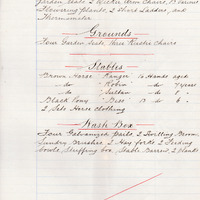 Garden Seats 2 Wicker Arm Chairs
Flowering Plants, 2 Short Ladders, and
Thermometer
Grounds
Four Garden Seats Three Rustic Chairs
Stables
Brown Horse "Ranger" 16 Hands aged
-do- "Robin" -do- 7 years
-do- "Sultan" -do- 8 "
Black Pony "Bess" 13 -do- 6 "
2 Sets Horse Clothing
Wash Box
Four Galvanized Pails, 2 Dwilling Broom
Sundry Brushes 2 Hay forks 2 Feeding
bowls, Stuffing box, Stable Barrow, 2 Planks